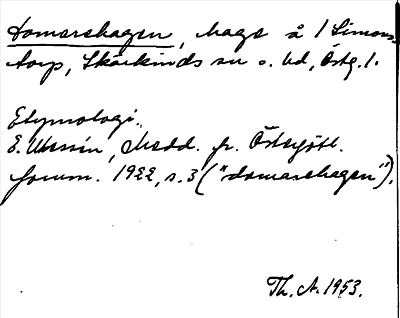 Domarehagen, hage å 1 Simons-
torp, Skärkinds sn o. hd, Östg. l.
Etymologi.
E. Wessén, Medd. fr. Östergötl.
fornm. 1922, s. 3 ("domarehagen").
Th. A. 1953.